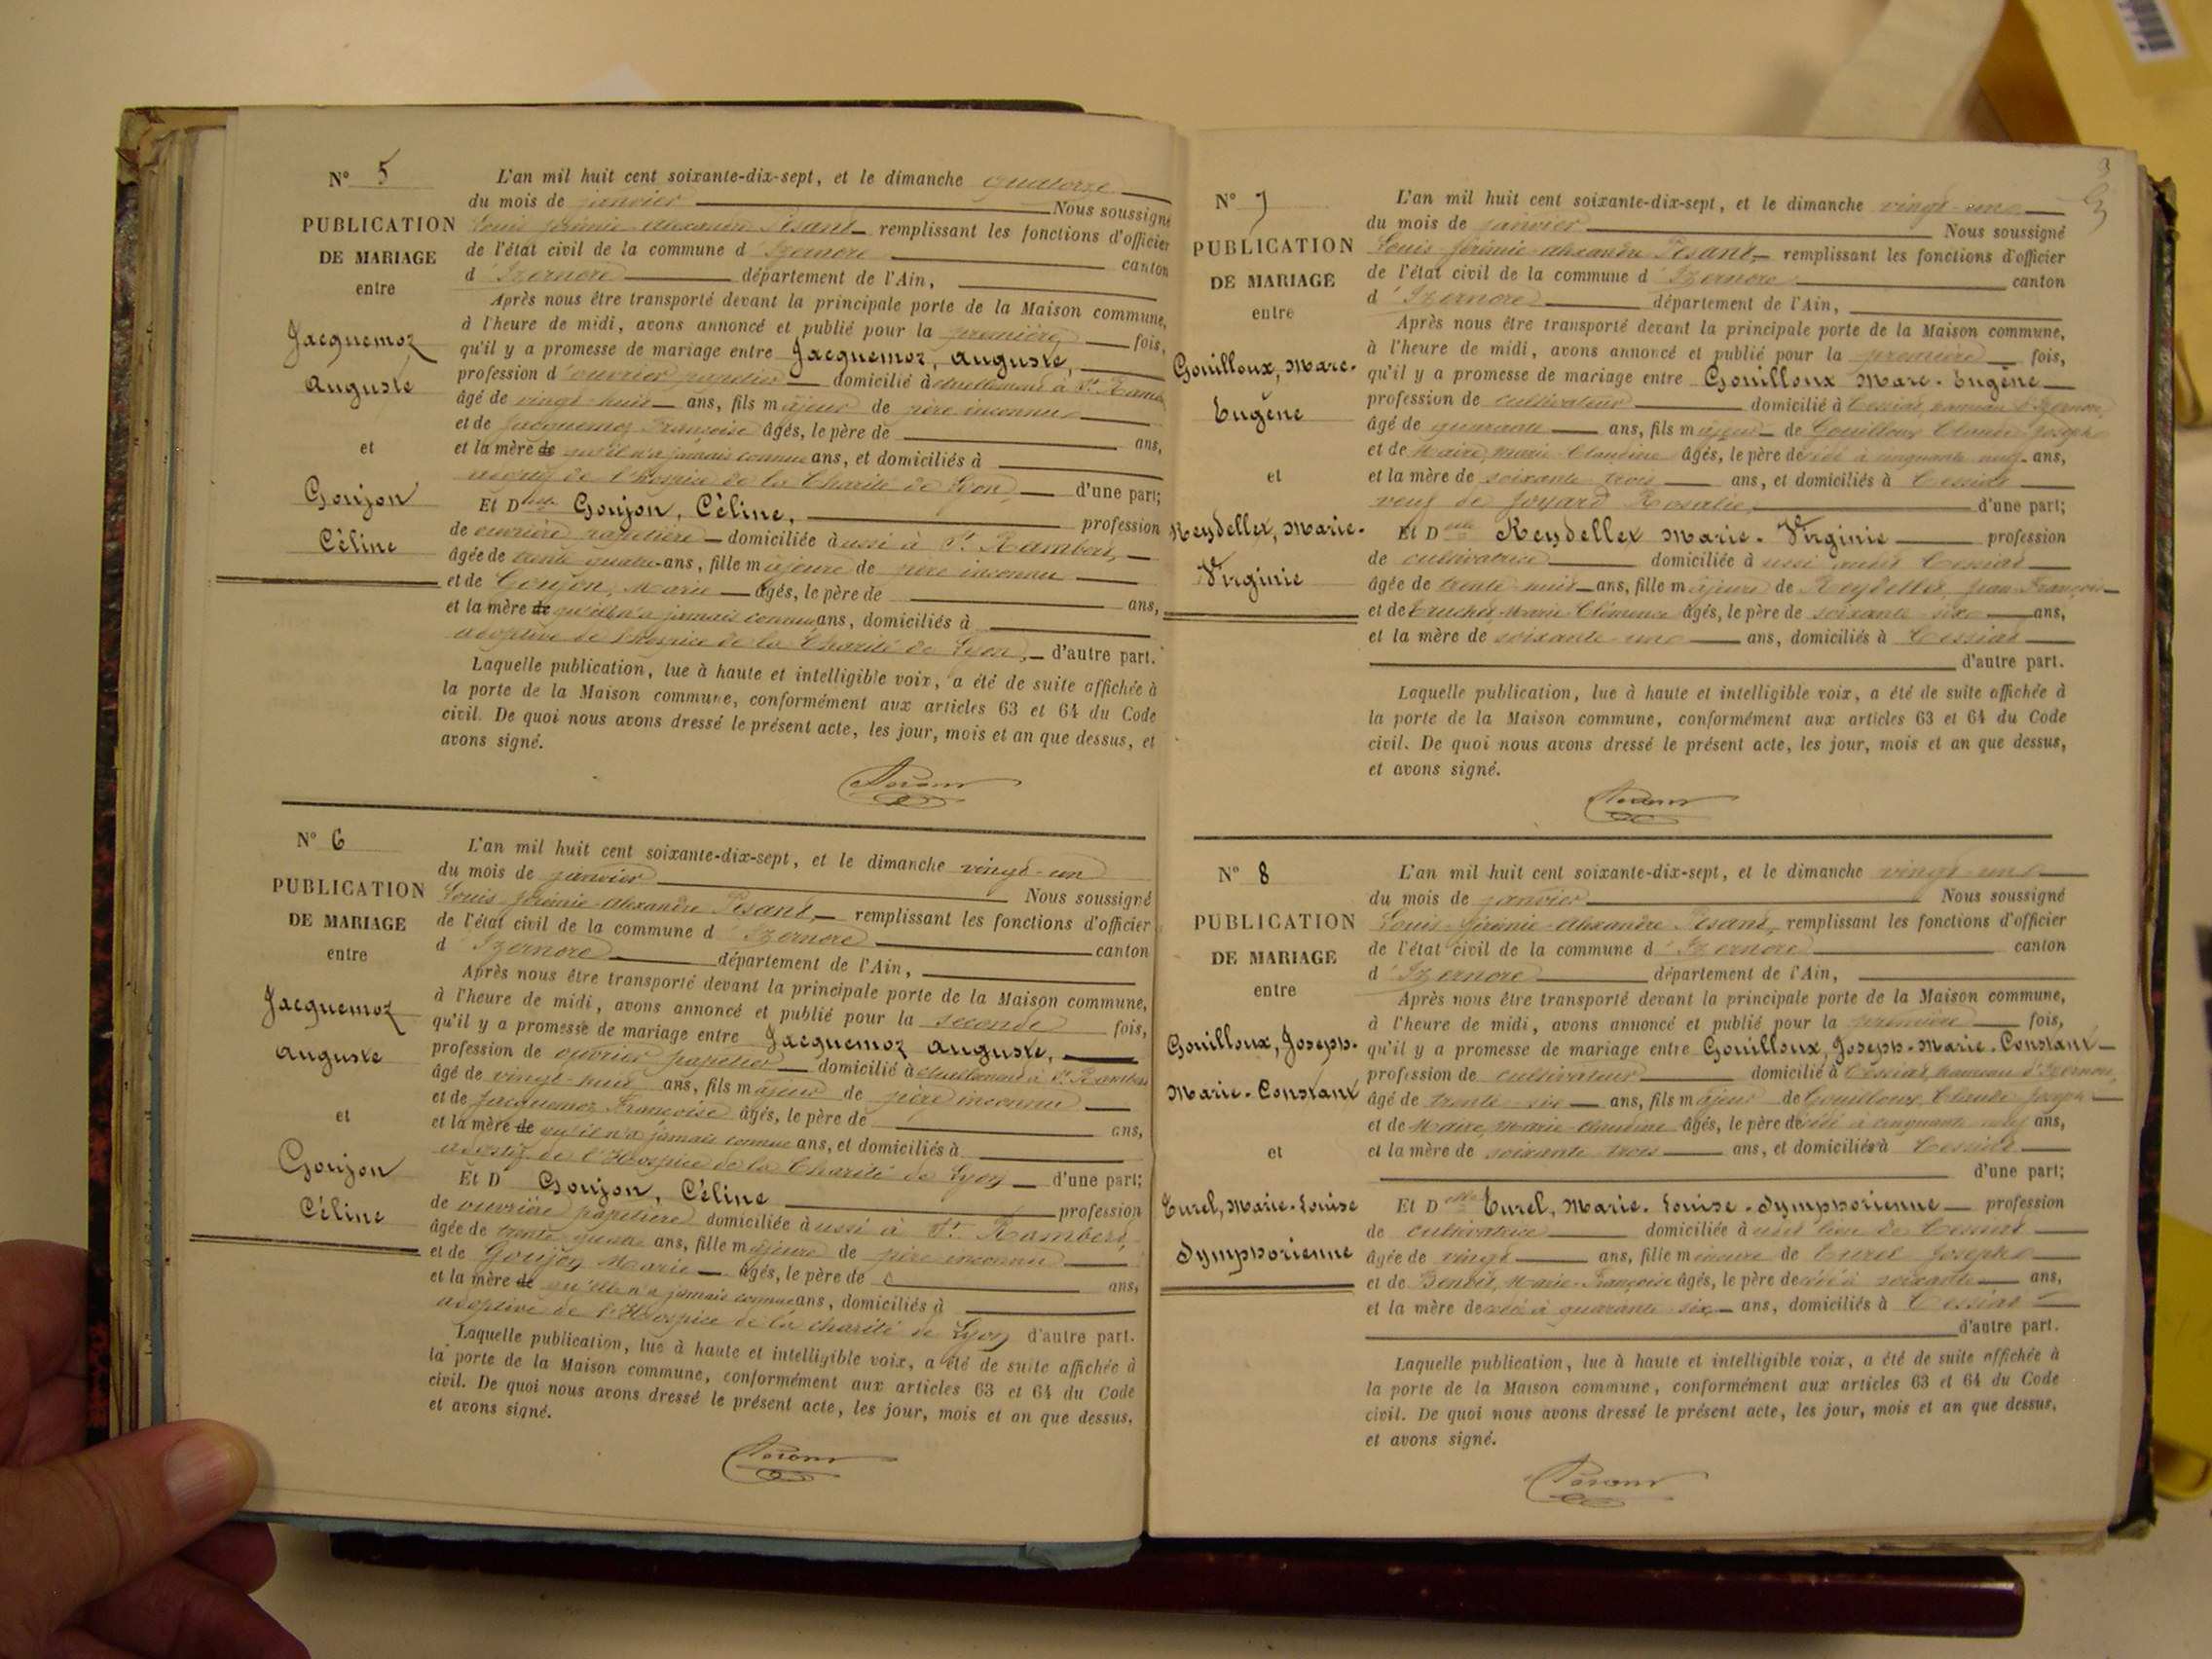 N° 5
PUBLICATION
DE MARIAGE
entre
Jacquemoz
Auguste
et
Goujon
Céline
L'an mil huit cent soixante-dix-sept, et le dimanche quatorze
du mois de janvier Nous soussigné
Louis Jérémie Alexandre Pesant remplissant les fonctions d'officier
de l'état civil de la commune d'Izernore canton
d'Izernore département de l'Ain,
Après nous être transporté devant la principale porte de la Maison commune,
à l'heure de midi, avons annoncé et publié pour la première fois,
qu'il y a promesse de mariage entre Jacquemoz, Auguste,
profession d'ouvrier papetier domicilié actuellement à St Rambert
âgé de vingt-huit ans, fils majeur de père inconnu
et de Jacquemoz Françoise âgés, le père de ans,
et la mère de qu'il n'a jamais connue ans, et domiciliés à
adoptif de l'Hospice de la Charité de Lyon d'une part;
Et Delle Goujon, Céline, profession
de ouvrière papetière domiciliée aussi à St Rambert,
âgée de trente quatre ans, fille majeure de père inconnu
et de Goujon, Marie âgés, le père de ans,
et la mère de qu'elle n'a jamais connue ans, domiciliés à
adoptive de l'Hospice de la Charité de Lyon, d'autre part.
Laquelle publication, lue à haute et intelligible voix, a été de suite affichée à
la porte de la Maison commune, conformément aux articles 63 et 64 du Code
civil. De quoi nous avons dressé le présent acte, les jour, mois et an que dessus, et
avons signé.
Pesant
N° 6
PUBLICATION
DE MARIAGE
entre
Jacquemoz
Auguste
et
Goujon
Céline
L'an mil huit cent soixante-dix-sept, et le dimanche vingt-un
du mois de janvier Nous soussigné
Louis Jérémie Alexandre Pesant, remplissant les fonctions d'officier
de l'état civil de la commune d'Izernore canton
d'Izernore département de l'Ain,
Après nous être transporté devant la principale porte de la Maison commune,
à l'heure de midi, avons annoncé et publié pour la seconde fois,
qu'il y a promesse de mariage entre Jacquemoz Auguste,
profession de ouvrier papetier domicilié actuellement à St Rambert
âgé de vingt-huit ans, fils majeur de père inconnu
et de Jacquemoz Françoise âgés, le père de ans,
et la mère de qu'il n'a jamais connue ans, et domiciliés à
adoptif de l'Hospice de la Charité de Lyon d'une part;
Et D Goujon, Céline profession
de ouvrière papetière domiciliée aussi à St Rambert,
âgée de trente quatre ans, fille majeure de père inconnu
et de Goujon Marie âgés, le père de ans,
et la mère de qu'elle n'a jamais connue ans, domiciliés à
adoptive de l'Hospice de la charité de Lyon d'autre part.
Laquelle publication, lue à haute et intelligible voix, a été de suite affichée à
la porte de la Maison commune, conformément aux articles 63 et 64 du Code
civil. De quoi nous avons dressé le présent acte, les jour, mois et an que dessus,
et avons signé.
Pesant
3
N° 7
PUBLICATION
DE MARIAGE
entre
Gouilloux, Marc-
Eugène
et
Reydellet, Marie-
Virginie
L'an mil huit cent soixante-dix-sept, et le dimanche vingt-un
du mois de janvier Nous soussigné
Louis Jérémie Alexandre Pesant, remplissant les fonctions d'officier
de l'état civil de la commune d'Izernore canton
d'Izernore département de l'Ain,
Après nous être transporté devant la principale porte de la Maison commune,
à l'heure de midi, avons annoncé et publié pour la première fois,
qu'il y a promesse de mariage entre Gouilloux Marc-Eugène
profession de cultivateur domicilié à Cessiat, hameau d'Izernore,
âgé de quarante ans, fils majeur de Gouilloux Claude Joseph
et de Maire, Marie Claudine âgés, le père décédé à cinquante neuf ans,
et la mère de soixante trois ans, et domiciliés à Cessiat
veuf de Joyard Rosalie, d'une part;
Et Delle Reydellet Marie-Virginie profession
de cultivatrice domiciliée aussi audit Cessiat
âgée de trente-huit ans, fille majeure de Reydellet, Jean François
et de Truchet, Marie Clémence âgés, le père de soixante six ans,
et la mère de soixante-un ans, domiciliés à Cessiat
d'autre part.
Laquelle publication, lue à haute et intelligible voix, a été de suite affichée à
la porte de la Maison commune, conformément aux articles 63 et 64 du Code
civil. De quoi nous avons dressé le présent acte, les jour, mois et an que dessus,
et avons signé.
Pesant
N° 8
PUBLICATION
DE MARIAGE
entre
Gouilloux, Joseph-
Marie-Constant
et
Turel, Marie-Louise
Symphorienne
L'an mil huit cent soixante-dix-sept, et le dimanche vingt-un
du mois de janvier Nous soussigné
Louis Jérémie Alexandre Pesant, remplissant les fonctions d'officier
de l'état civil de la commune d'Izernore canton
d'Izernore département de l'Ain,
Après nous être transporté devant la principale porte de la Maison commune,
à l'heure de midi, avons annoncé et publié pour la première fois,
qu'il y a promesse de mariage entre Gouilloux, Joseph-Marie-Constant
profession de cultivateur domicilié à Cessiat, hameau d'Izernore,
âgé de trente-six ans, fils majeur de Gouilloux, Claude Joseph
et de Maire, Marie Claudine âgés, le père décédé à cinquante neuf ans,
et la mère de soixante trois ans, et domiciliés à Cessiat
d'une part;
Et Delle Turel, Marie-Louise-Symphorienne profession
de cultivatrice domiciliée audit lieu de Cessiat
âgée de vingt ans, fille mineure de Turel Joseph
et de Benoit, Marie-Françoise âgés, le père décédé à soixante ans,
et la mère décédée à quarante-six ans, domiciliés à Cessiat
d'autre part.
Laquelle publication, lue à haute et intelligible voix, a été de suite affichée à
la porte de la Maison commune, conformément aux articles 63 et 64 du Code
civil. De quoi nous avons dressé le présent acte, les jour, mois et an que dessus,
et avons signé.
Pesant